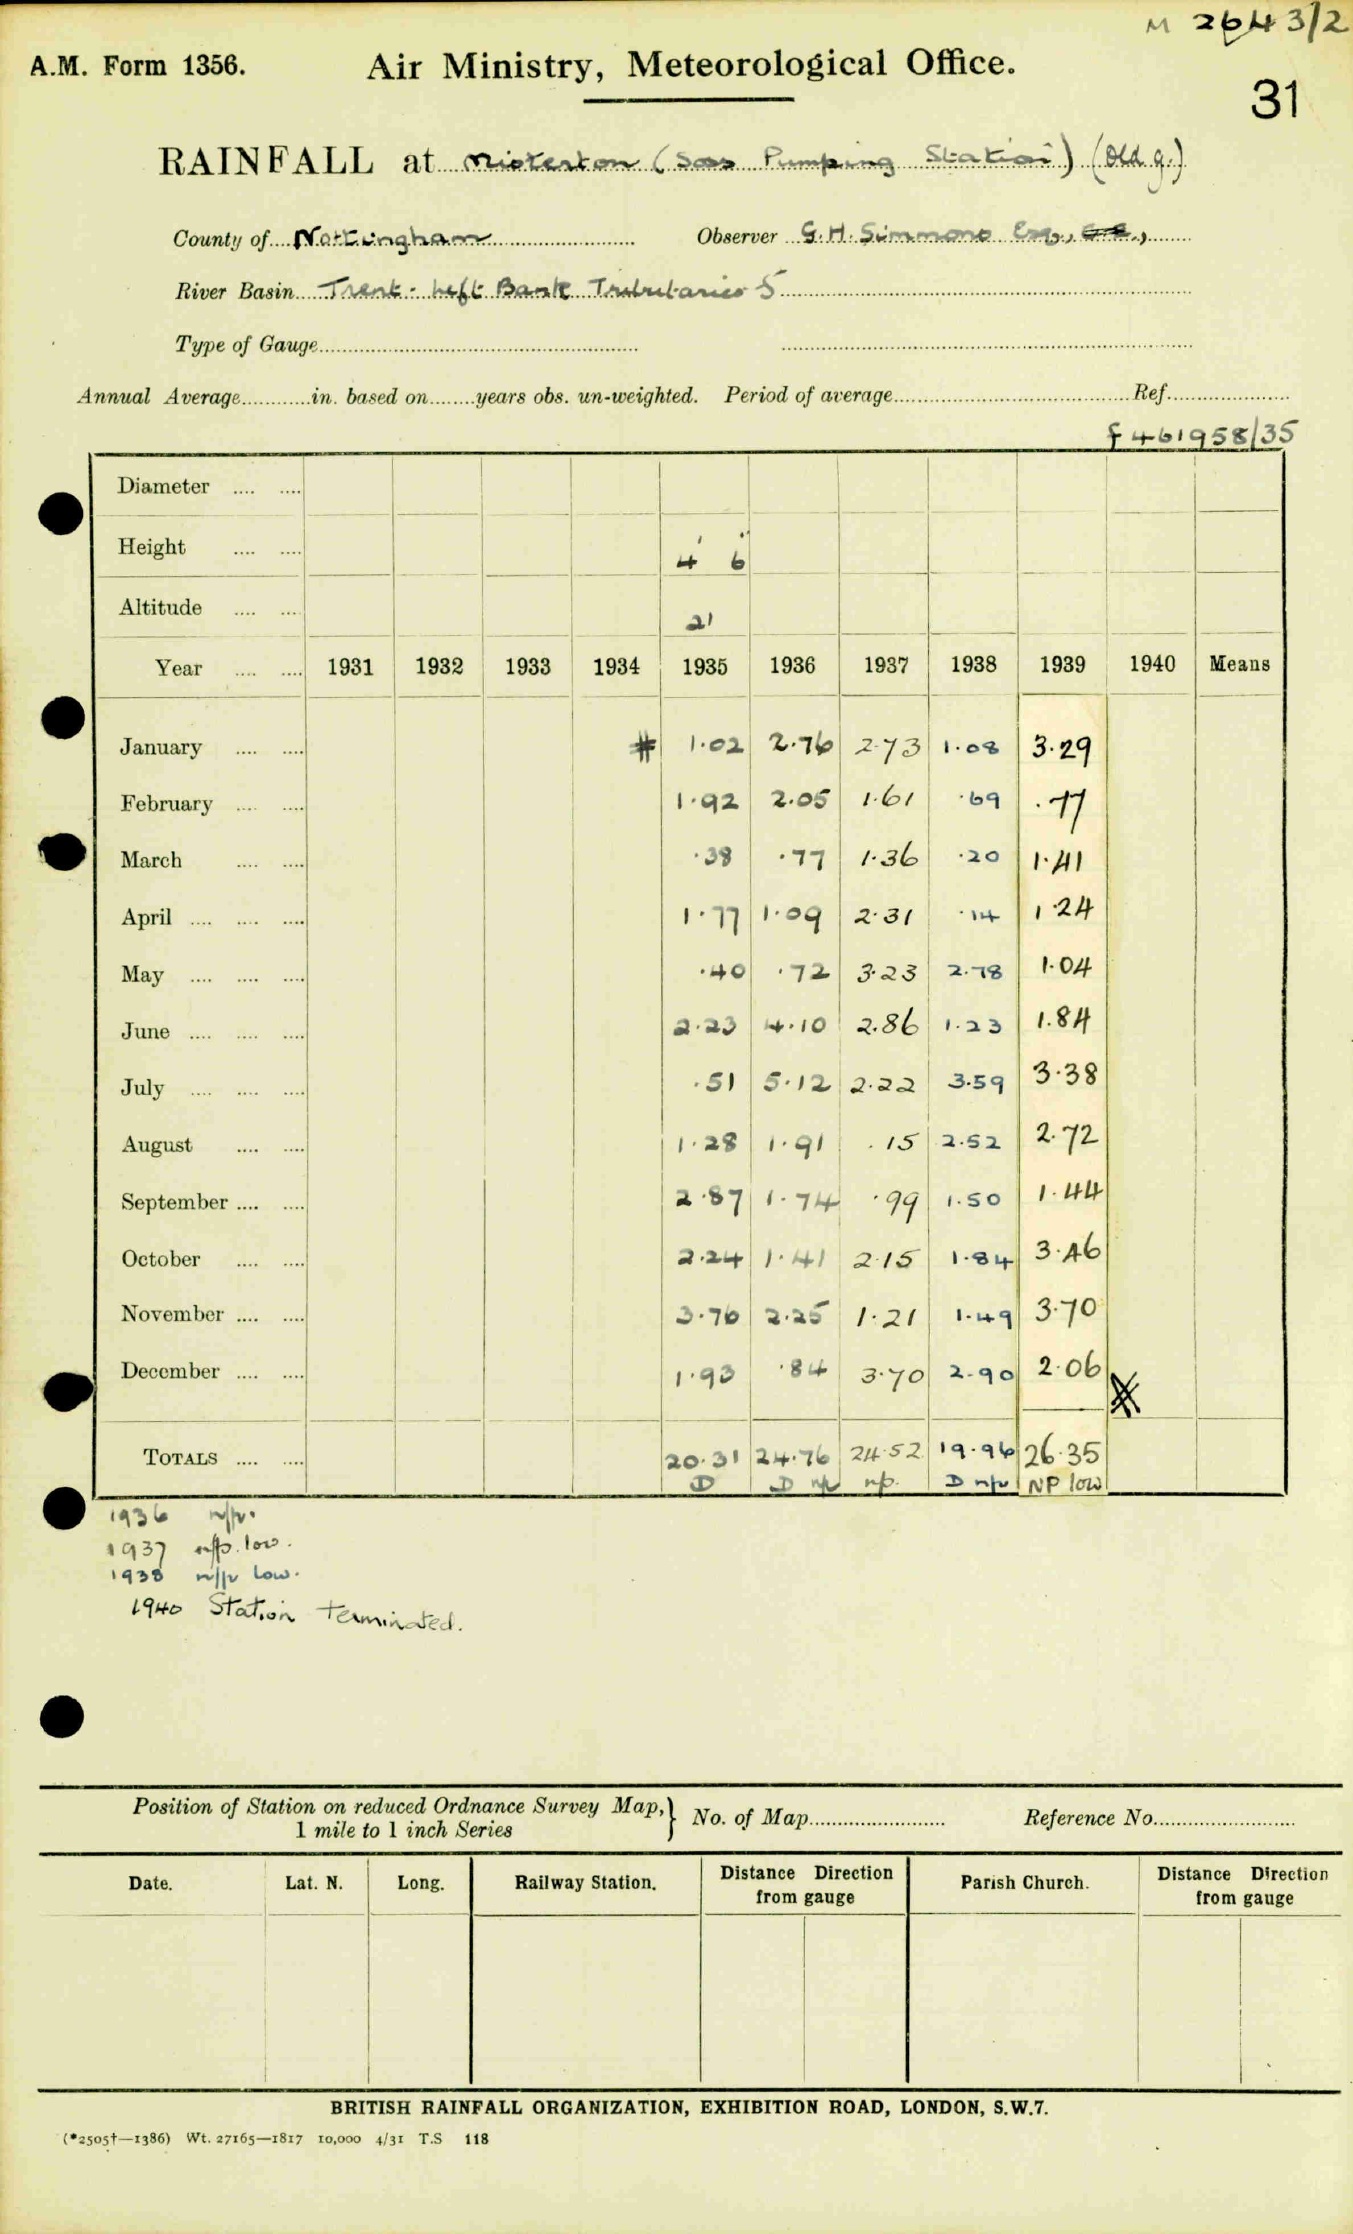 M 2643/2
A.M. Form 1356. Air Ministry, Meteorological Office.
31
RAINFALL at Misterton (Soss Pumping Station) (Old g.)
County of Nottingham Observer G.H. Simmons Esq.,
River Basin Trent - Left Bank Tributaries 5
Type of Gauge
Annual Average in. based on years obs. un-weighted. Period of average Ref.
f 461958/35
Diameter
Height 4' 6"
Altitude 21
Year 1931 1932 1933 1934 1935 1936 1937 1938 1939 1940 Means
January # 1.02 2.76 2.73 1.08 3.29
February 1.92 2.05 1.61 .69 .77
March .38 .77 1.36 .20 1.41
April 1.77 1.09 2.31 .14 1.24
May .40 .72 3.23 2.78 1.04
June 2.23 4.10 2.86 1.23 1.84
July .51 5.12 2.22 3.59 3.38
August 1.28 1.91 .15 2.52 2.72
September 2.87 1.74 .99 1.50 1.44
October 2.24 1.41 2.15 1.84 3.46
November 3.76 2.25 1.21 1.49 3.70
December 1.93 .84 3.70 2.90 2.06
TOTALS 20.31 24.76 24.52 19.96 26.35
D D np np. D np NP low
1936 n/p.
1937 n/p. low.
1938 n/p low.
1940 Station terminated.
Position of Station on reduced Ordnance Survey Map, } No. of Map Reference No.
1 mile to 1 inch Series
Date. Lat. N. Long. Railway Station. Distance Direction from gauge Parish Church. Distance Direction from gauge
BRITISH RAINFALL ORGANIZATION, EXHIBITION ROAD, LONDON, S.W.7.
(*2505†—1386) Wt. 27165—1817 10,000 4/31 T.S 118